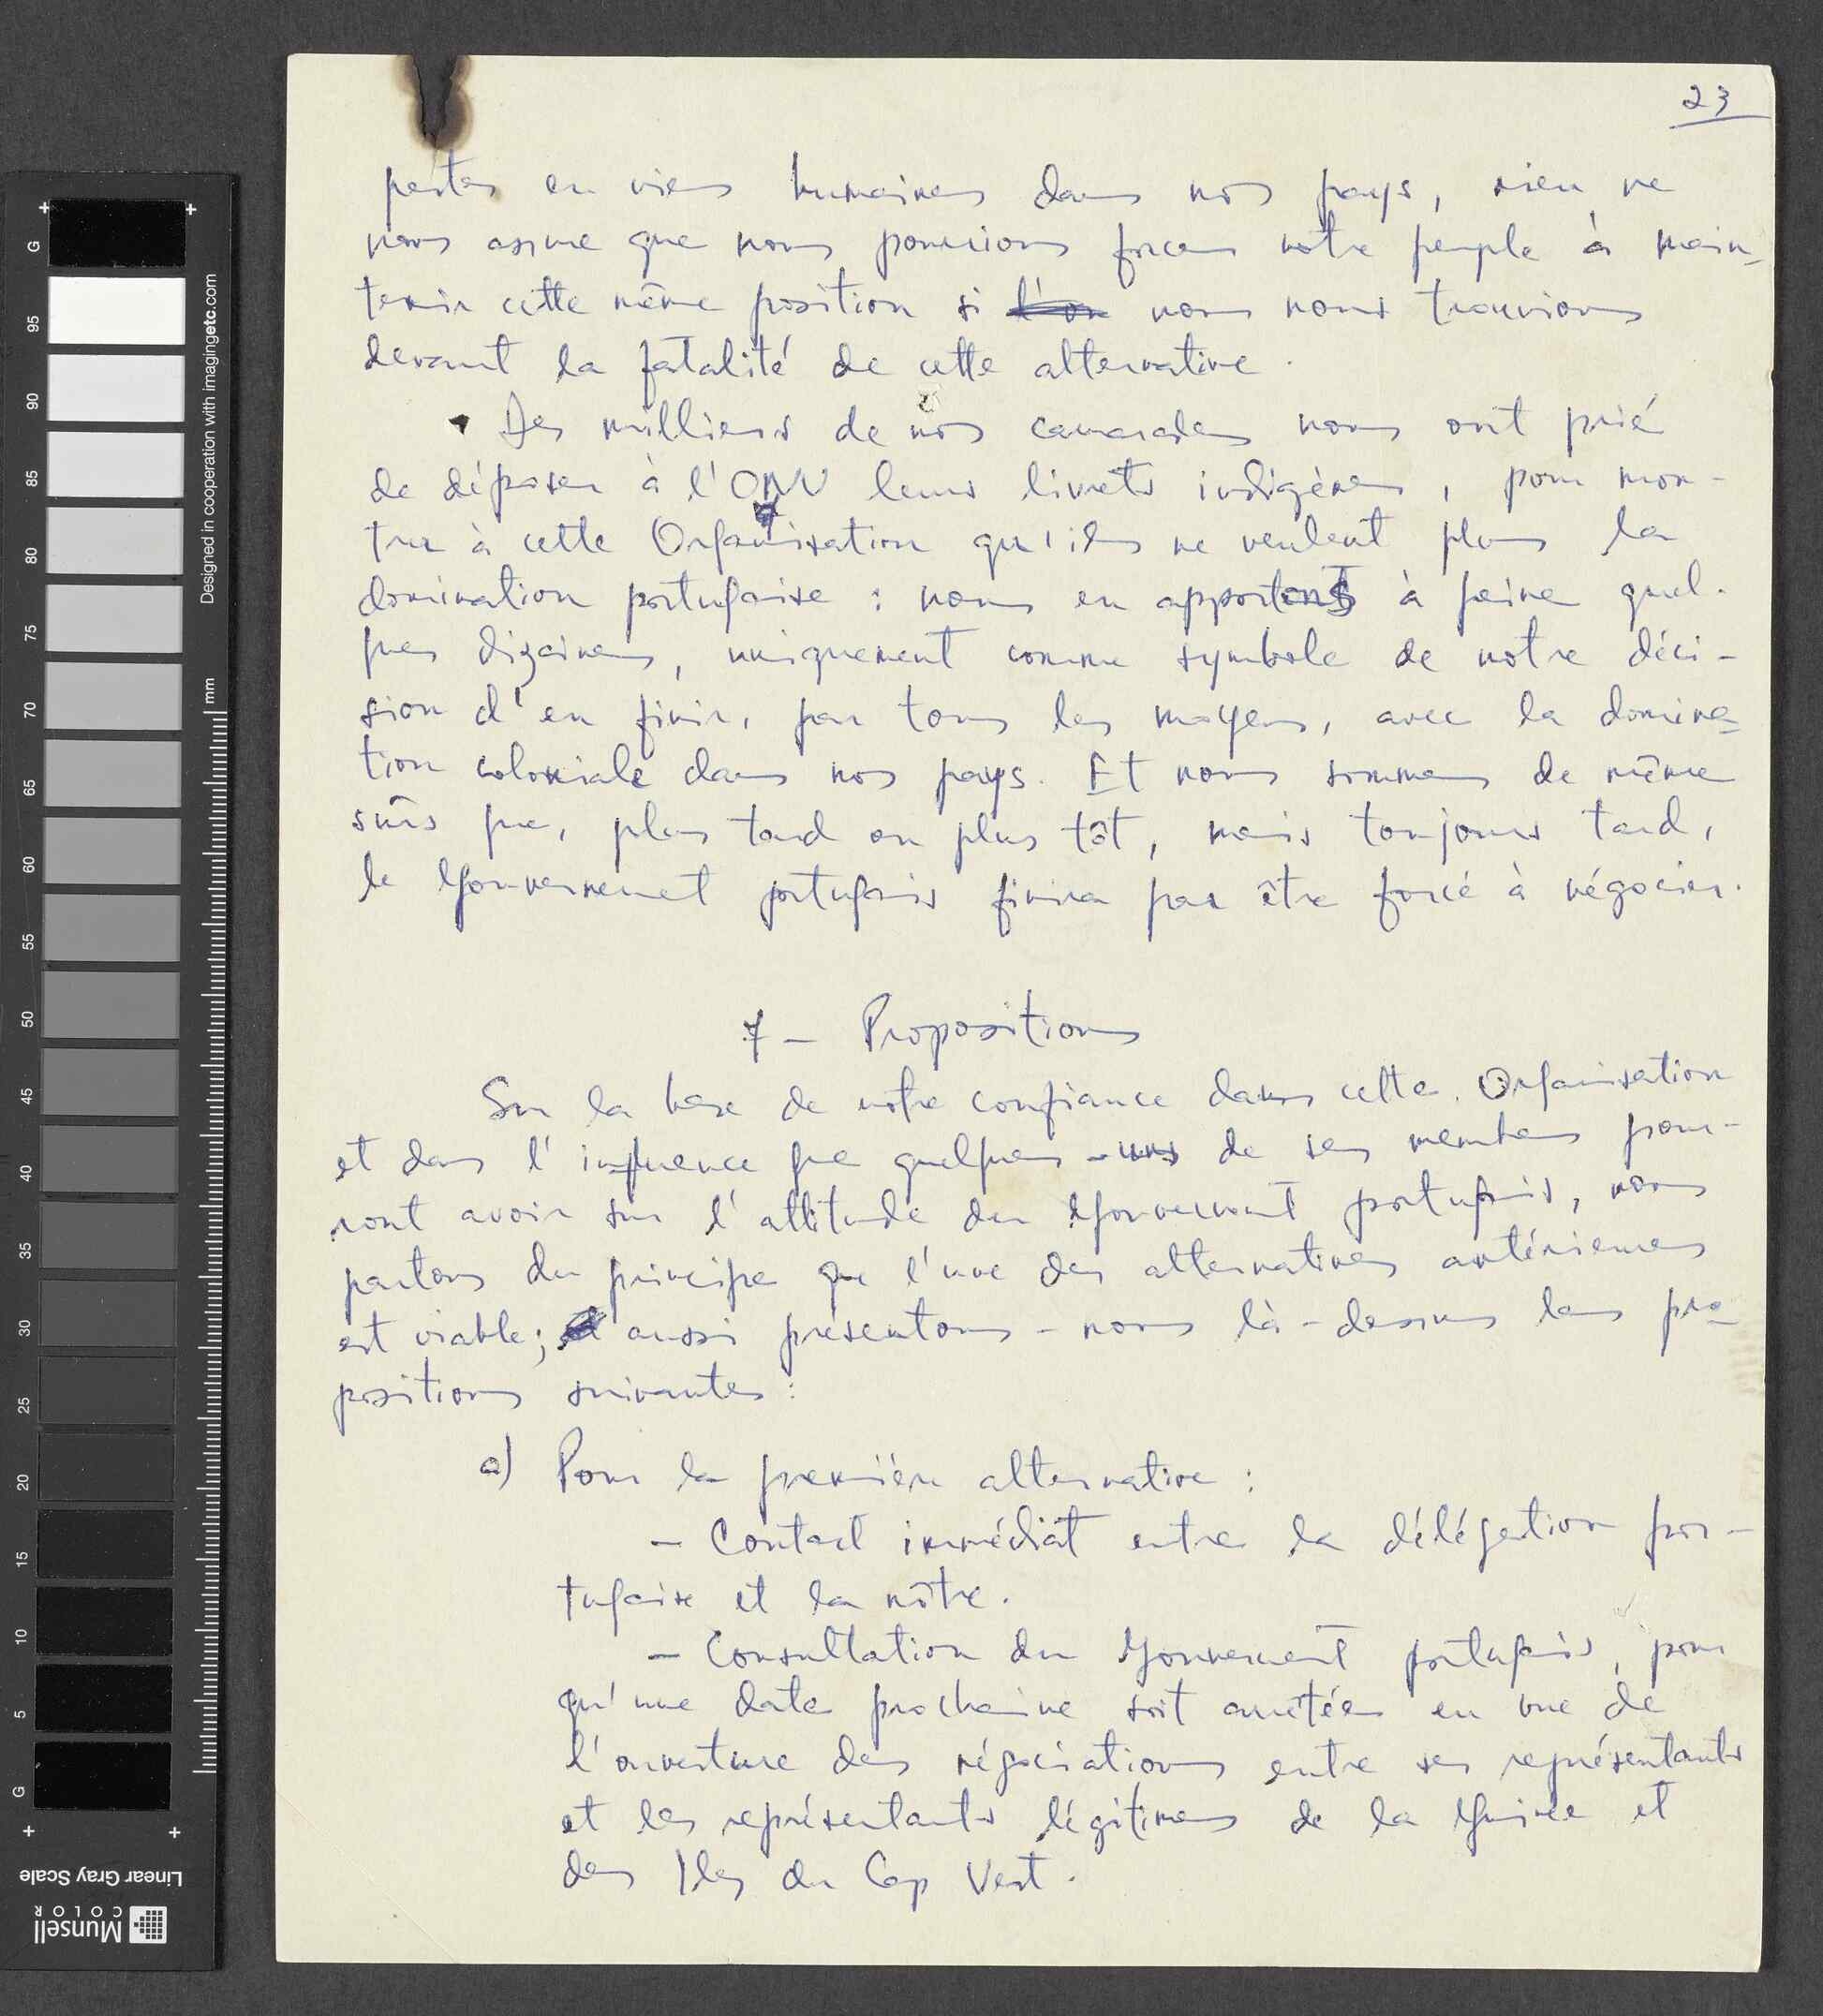 23
pertes en vies humaines dans nos pays, rien ne
nous assure que nous pourrions forcer notre peuple à main-
tenir cette même position si l'on nous nous trouvions
devant la fatalité de cette alternative.
Des milliers de nos camarades nous ont prié
de déposer à l'ONU leurs livrets indigènes, pour mon-
trer à cette Organisation qu'ils ne veulent plus la
domination portugaise : nous en apportons à peine quel-
ques dizaines, uniquement comme symbole de notre déci-
sion d'en finir, par tous les moyens, avec la domina-
tion coloniale dans nos pays. Et nous sommes de même
sûrs que, plus tard ou plus tôt, mais toujours tard,
le Gouvernement portugais finira par être forcé à négocier.
7 - Propositions
Sur la base de notre confiance dans cette Organisation
et dans l'influence que quelques-uns de ses membres pour-
ront avoir sur l'attitude du Gouvernement portugais, nous
partons du principe que l'une des alternatives antérieures
est viable; aussi présentons-nous là-dessus les pro-
positions suivantes :
a) Pour la première alternative :
- Contact immédiat entre la délégation por-
tugaise et la nôtre.
- Consultation du Gouvernement portugais, pour
qu'une date prochaine soit arrêtée en vue de
l'ouverture des négociations entre ses représentants
et les représentants légitimes de la Guinée et
des Iles du Cap Vert.
G
95
90
85
80
75
70
65
60
55
50
45
40
35
30
25
20
15
10
5
G
mm
Designed in cooperation with imagingetc.com
Linear Gray Scale
Munsell
COLOR